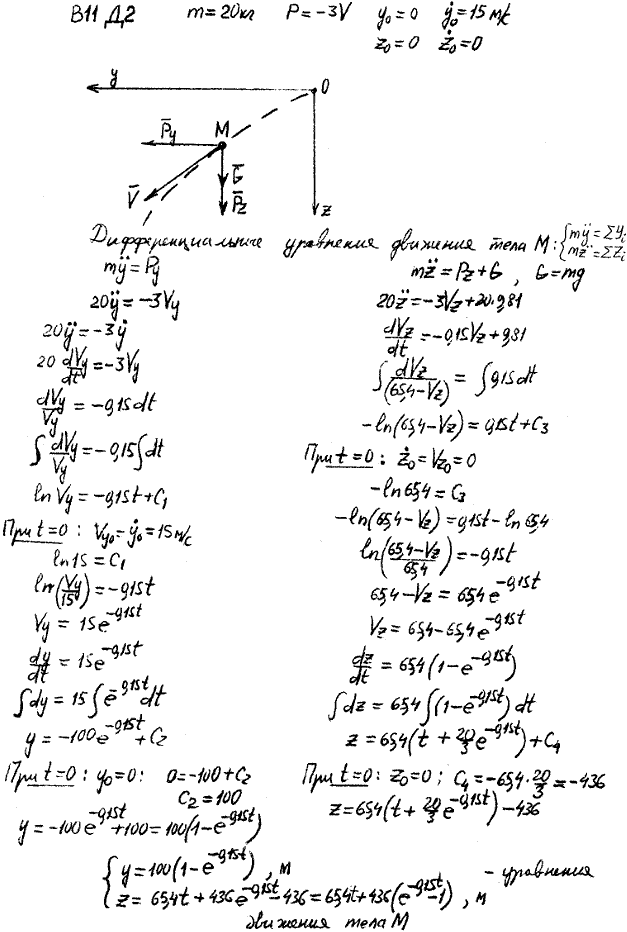 В11 Д2 m=20кг P=-3V y₀=0 ẏ₀=15 м/с
z₀=0 ż₀=0
y O
P̄y M
V̄ Ḡ
P̄z
z
Дифференциальные уравнения движения тела М: {mÿ=ΣYi
mz̈=ΣZi
mÿ=Py
20ÿ=-3Vy
20ÿ=-3ẏ
20 dVy/dt=-3Vy
dVy/Vy=-0,15dt
∫dVy/Vy=-0,15∫dt
lnVy=-0,15t+C₁
При t=0: Vy₀=ẏ₀=15м/с
ln15=C₁
ln(Vy/15)=-0,15t
Vy=15e^-0,15t
dy/dt=15e^-0,15t
∫dy=15∫e^-0,15t dt
y=-100e^-0,15t+C₂
При t=0: y₀=0: 0=-100+C₂
C₂=100
y=-100e^-0,15t+100=100(1-e^-0,15t)
mz̈=Pz+G, G=mg
20z̈=-3Vz+20·9,81
dVz/dt=-0,15Vz+9,81
∫dVz/(65,4-Vz)=∫0,15dt
-ln(65,4-Vz)=0,15t+C₃
При t=0: ż₀=Vz₀=0
-ln65,4=C₃
-ln(65,4-Vz)=0,15t-ln65,4
ln(65,4-Vz/65,4)=-0,15t
65,4-Vz=65,4e^-0,15t
Vz=65,4-65,4e^-0,15t
dz/dt=65,4(1-e^-0,15t)
∫dz=65,4∫(1-e^-0,15t)dt
z=65,4(t+20/3e^-0,15t)+C₄
При t=0: z₀=0; C₄=-65,4·20/3=-436
z=65,4(t+20/3e^-0,15t)-436
{y=100(1-e^-0,15t), м - уравнения
z=65,4t+436e^-0,15t-436=65,4t+436(e^-0,15t-1), м
движения тела М